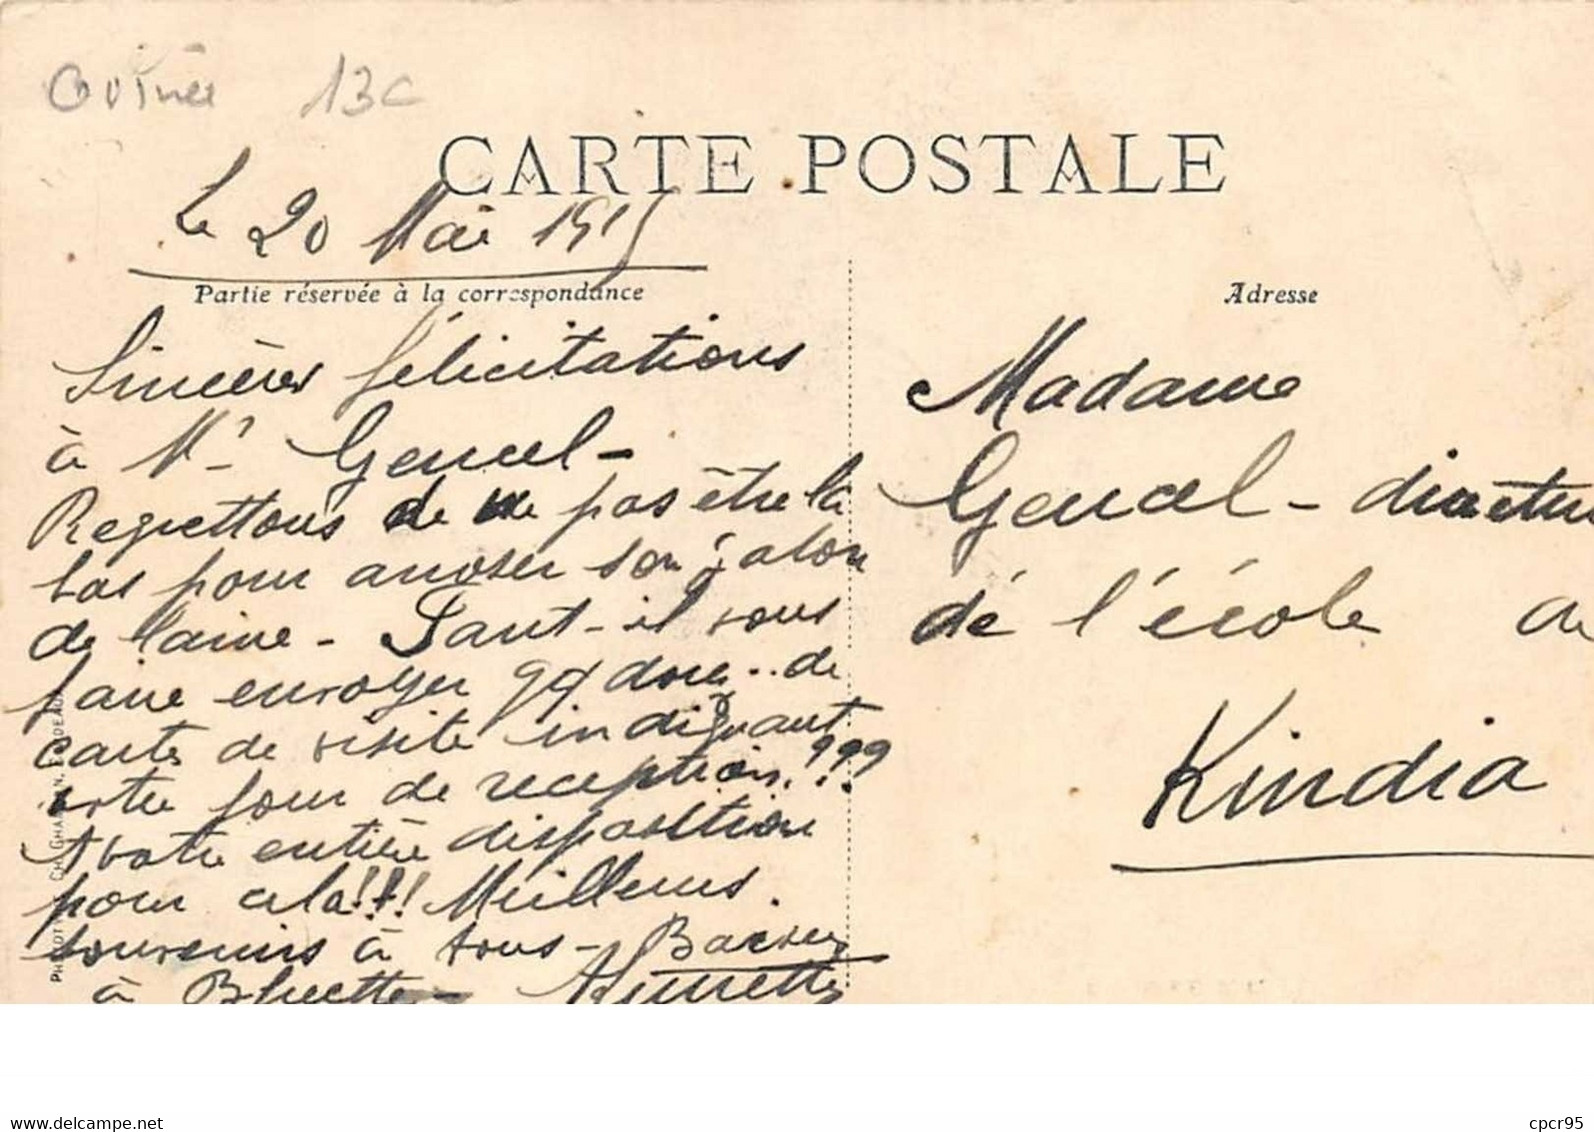 Guinée 13c
CARTE POSTALE
Le 20 Mai 1915
Partie réservée à la correspondance
Sincères félicitations
à Mr Gencel-
Regrettons de ne pas être là
bas pour arroser son galon
de laine - Faut-il vous
faire envoyer qq douz.. de
cartes de visite indiquant
votre jour de reception!???
A votre entière disposition
pour cela!!! Meilleurs
souvenirs à tous - Baisers
à Bluette -
Adresse
Madame
Gencel - directri
de l'école de
Kindia
delcampe.net
cpcr95